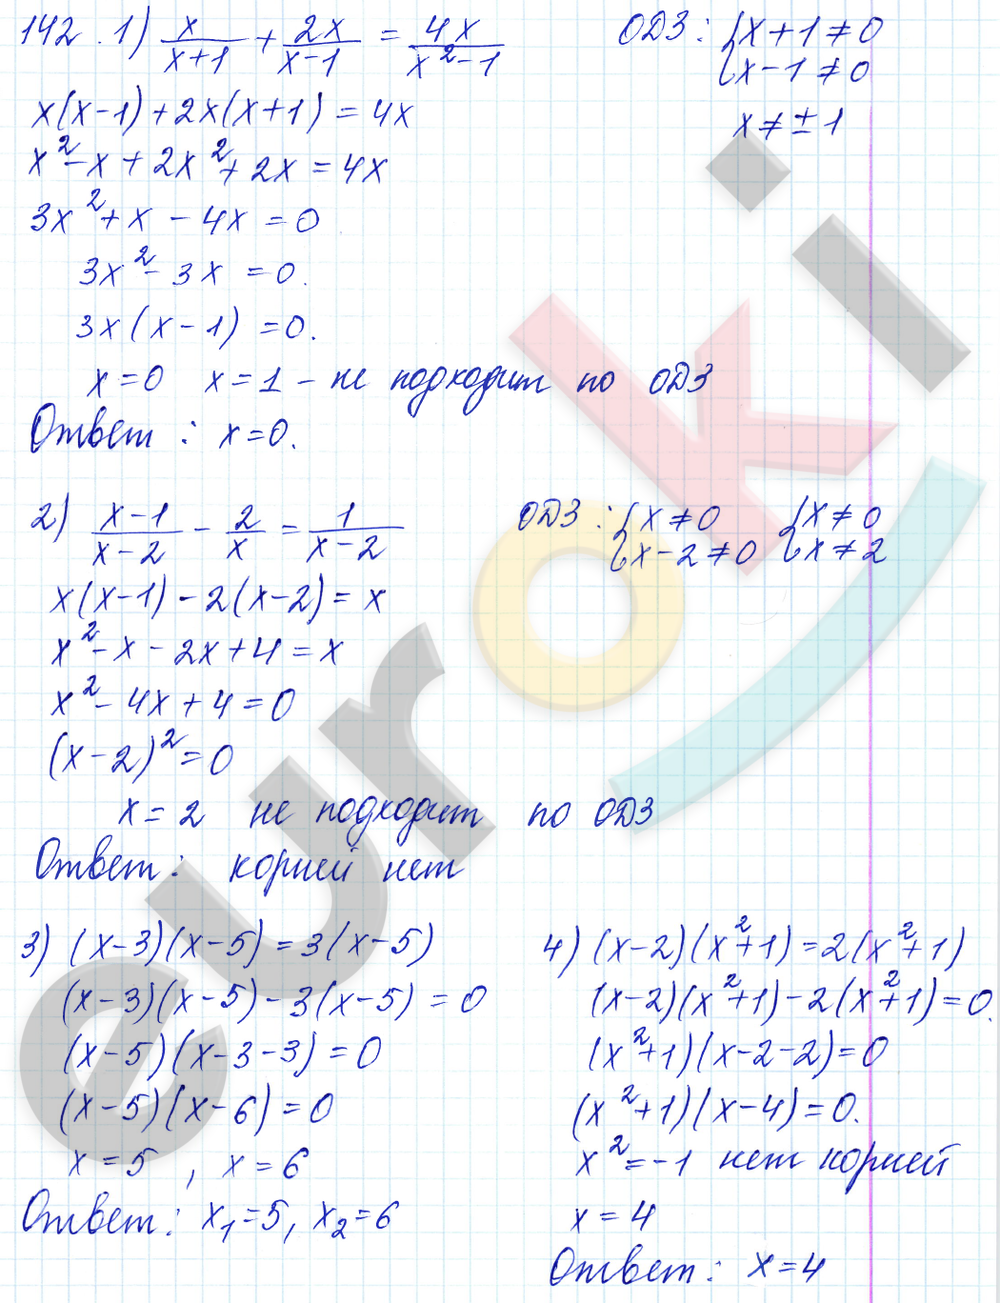 142. 1) x/(x+1) + 2x/(x-1) = 4x/(x²-1)
ОДЗ: {x+1≠0
{x-1≠0
x≠±1
x(x-1)+2x(x+1)=4x
x²-x+2x²+2x=4x
3x²+x-4x=0
3x²-3x=0.
3x(x-1)=0.
x=0 x=1 - не подходит по ОДЗ
Ответ: x=0.
2) (x-1)/(x-2) - 2/x = 1/(x-2)
ОДЗ: {x≠0 {x≠0
{x-2≠0 {x≠2
x(x-1)-2(x-2)=x
x²-x-2x+4=x
x²-4x+4=0
(x-2)²=0
x=2 не подходит по ОДЗ
Ответ: корней нет
3) (x-3)(x-5)=3(x-5)
(x-3)(x-5)-3(x-5)=0
(x-5)(x-3-3)=0
(x-5)(x-6)=0
x=5, x=6
Ответ: x₁=5, x₂=6
4) (x-2)(x²+1)=2(x²+1)
(x-2)(x²+1)-2(x²+1)=0.
(x²+1)(x-2-2)=0
(x²+1)(x-4)=0.
x²=-1 нет корней
x=4
Ответ: x=4
euroki